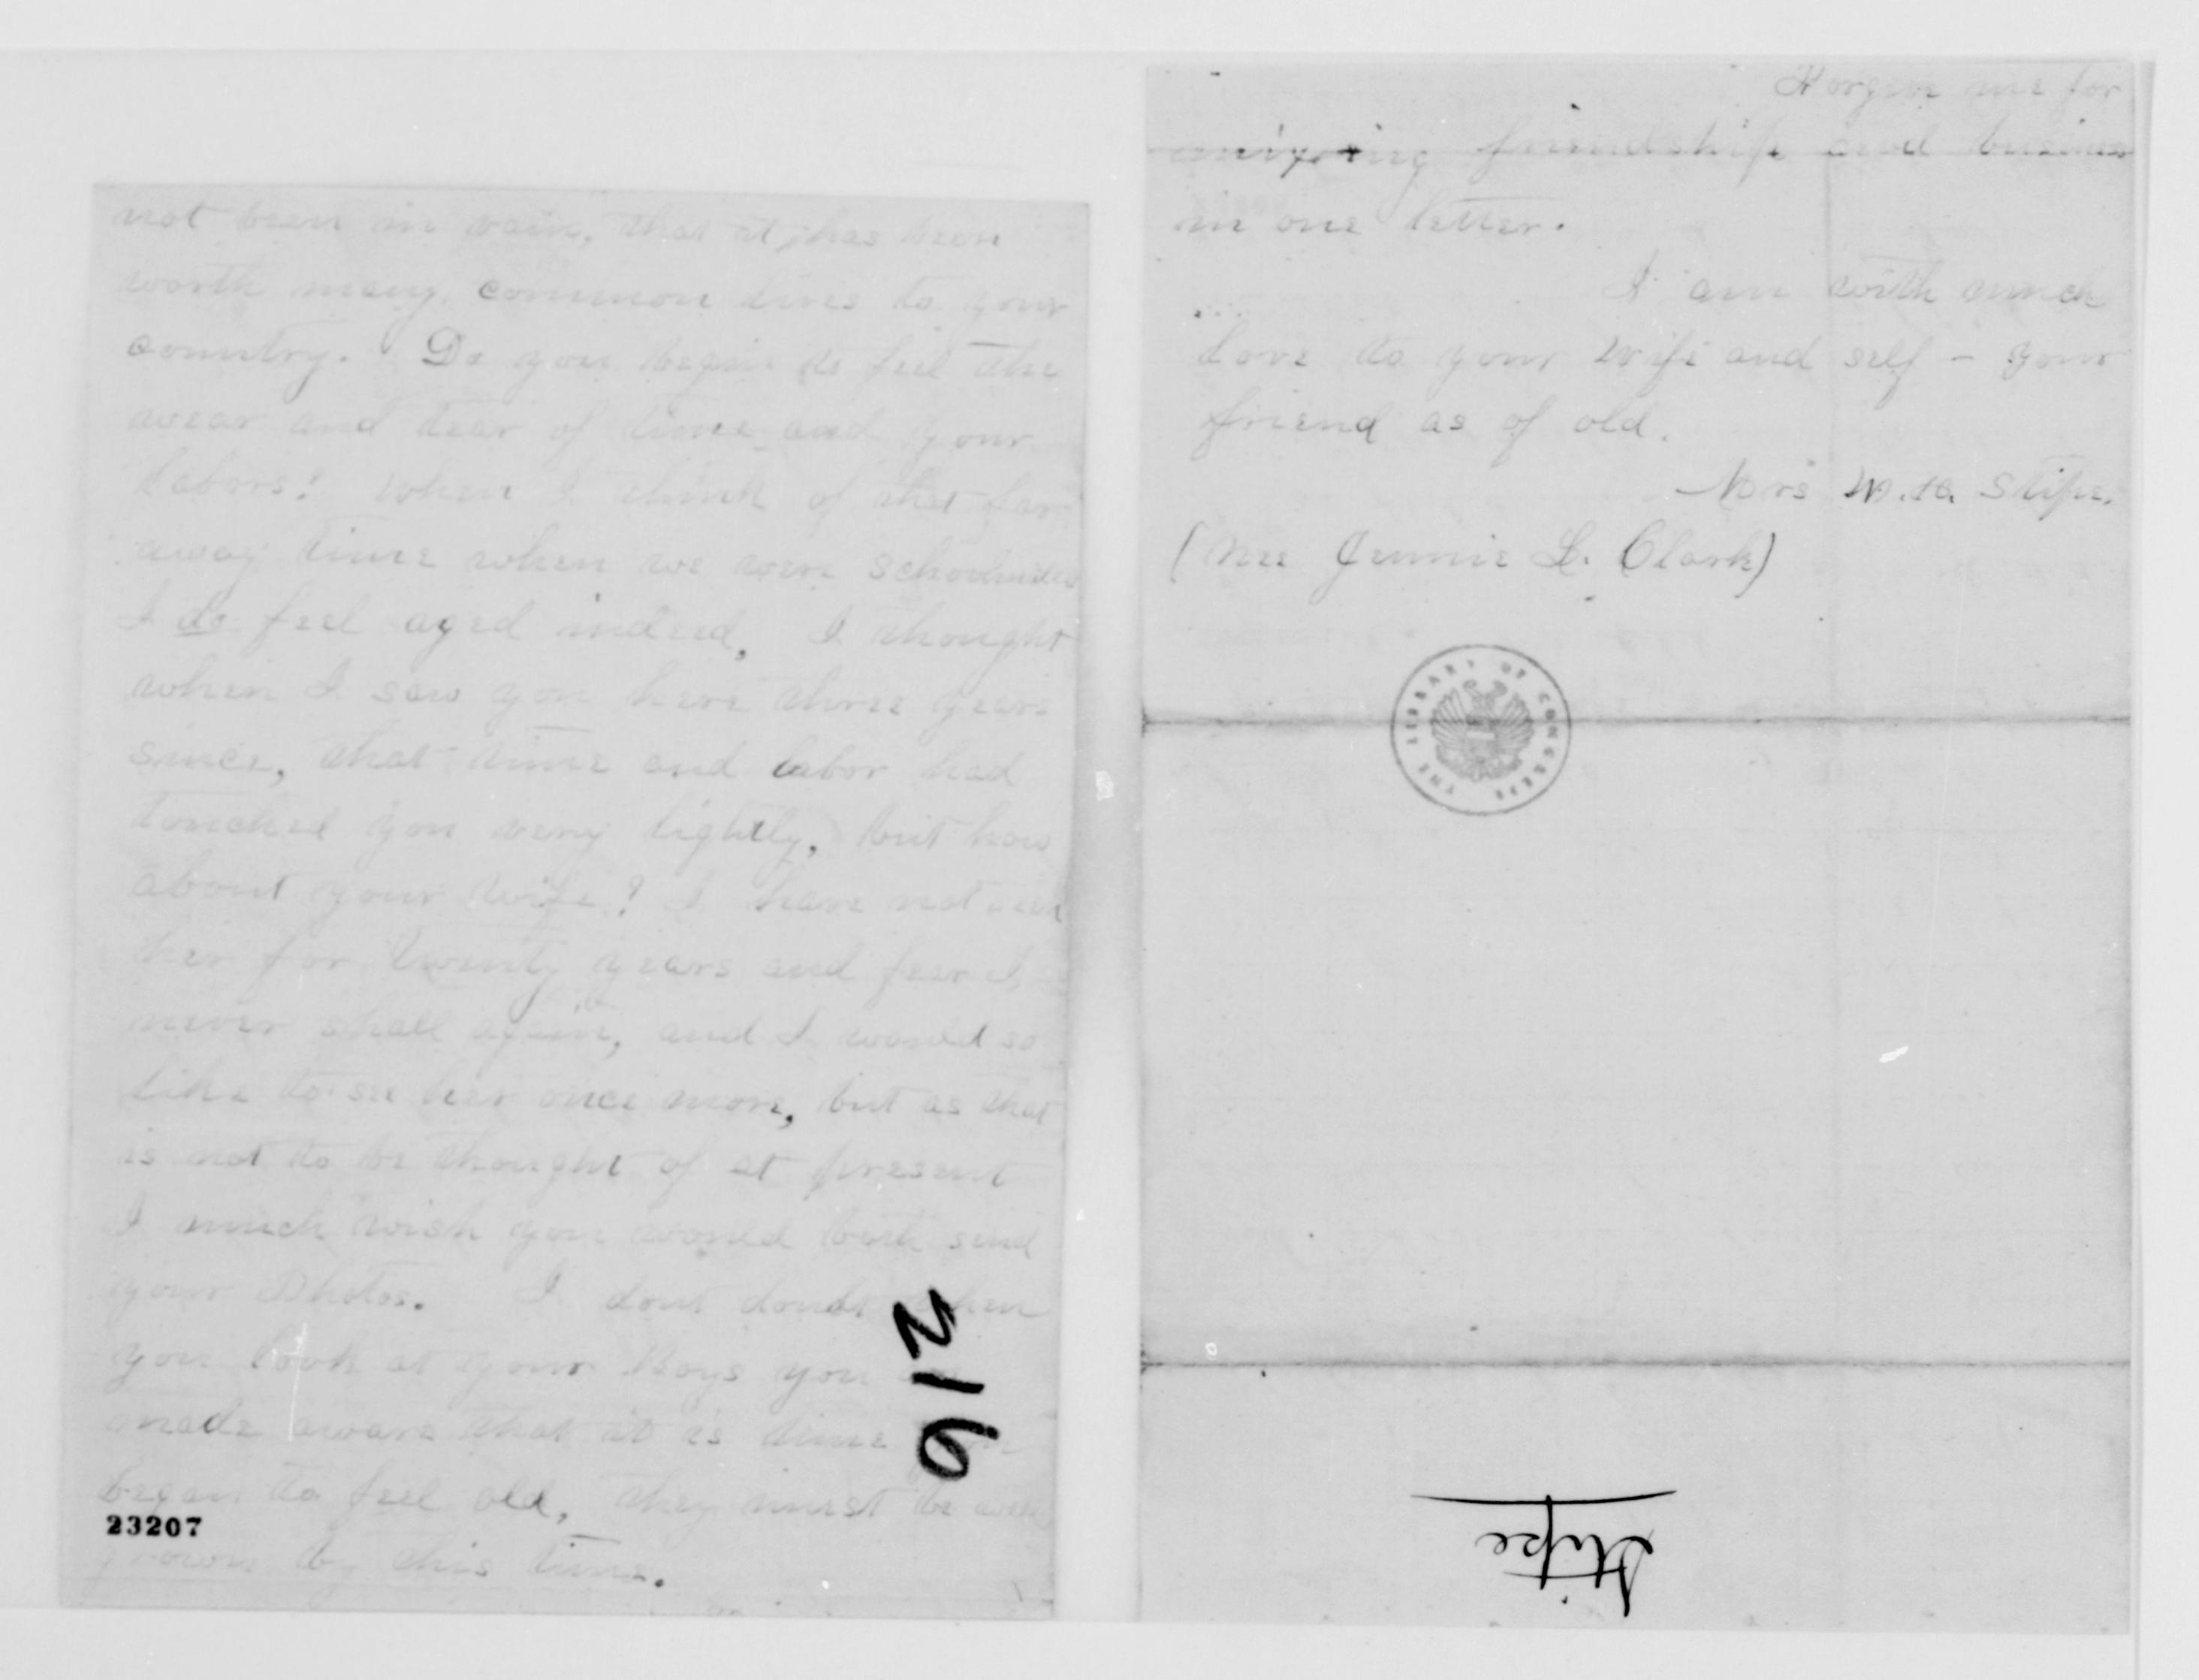 not been in vain, that it has been
worth many common lives to your
country. Do you begin to feel the
wear and tear of time and your
labors? When I think of that far
away time when we were schoolmates
I do feel aged indeed, I thought
when I saw you here three years
since, that time and labor had
touched you very lightly, but how
about your wife? I have not seen
her for twenty years and fear I
never shall again, and I would so
like to see her once more, but as that
is not to be thought of at present
I much wish you would both send
your Photos. I dont doubt when
you look at your Boys you
made aware that it is time
began to feel old, they must be
grown by this time.
216
23207
Forgive me for
friendship and business
in one letter.
I am with much
Love to your wife and self - your
friend as of old.
Mrs W. H. Stipe.
(Nee Jennie L. Clark)
THE LIBRARY OF CONGRESS
Stipe